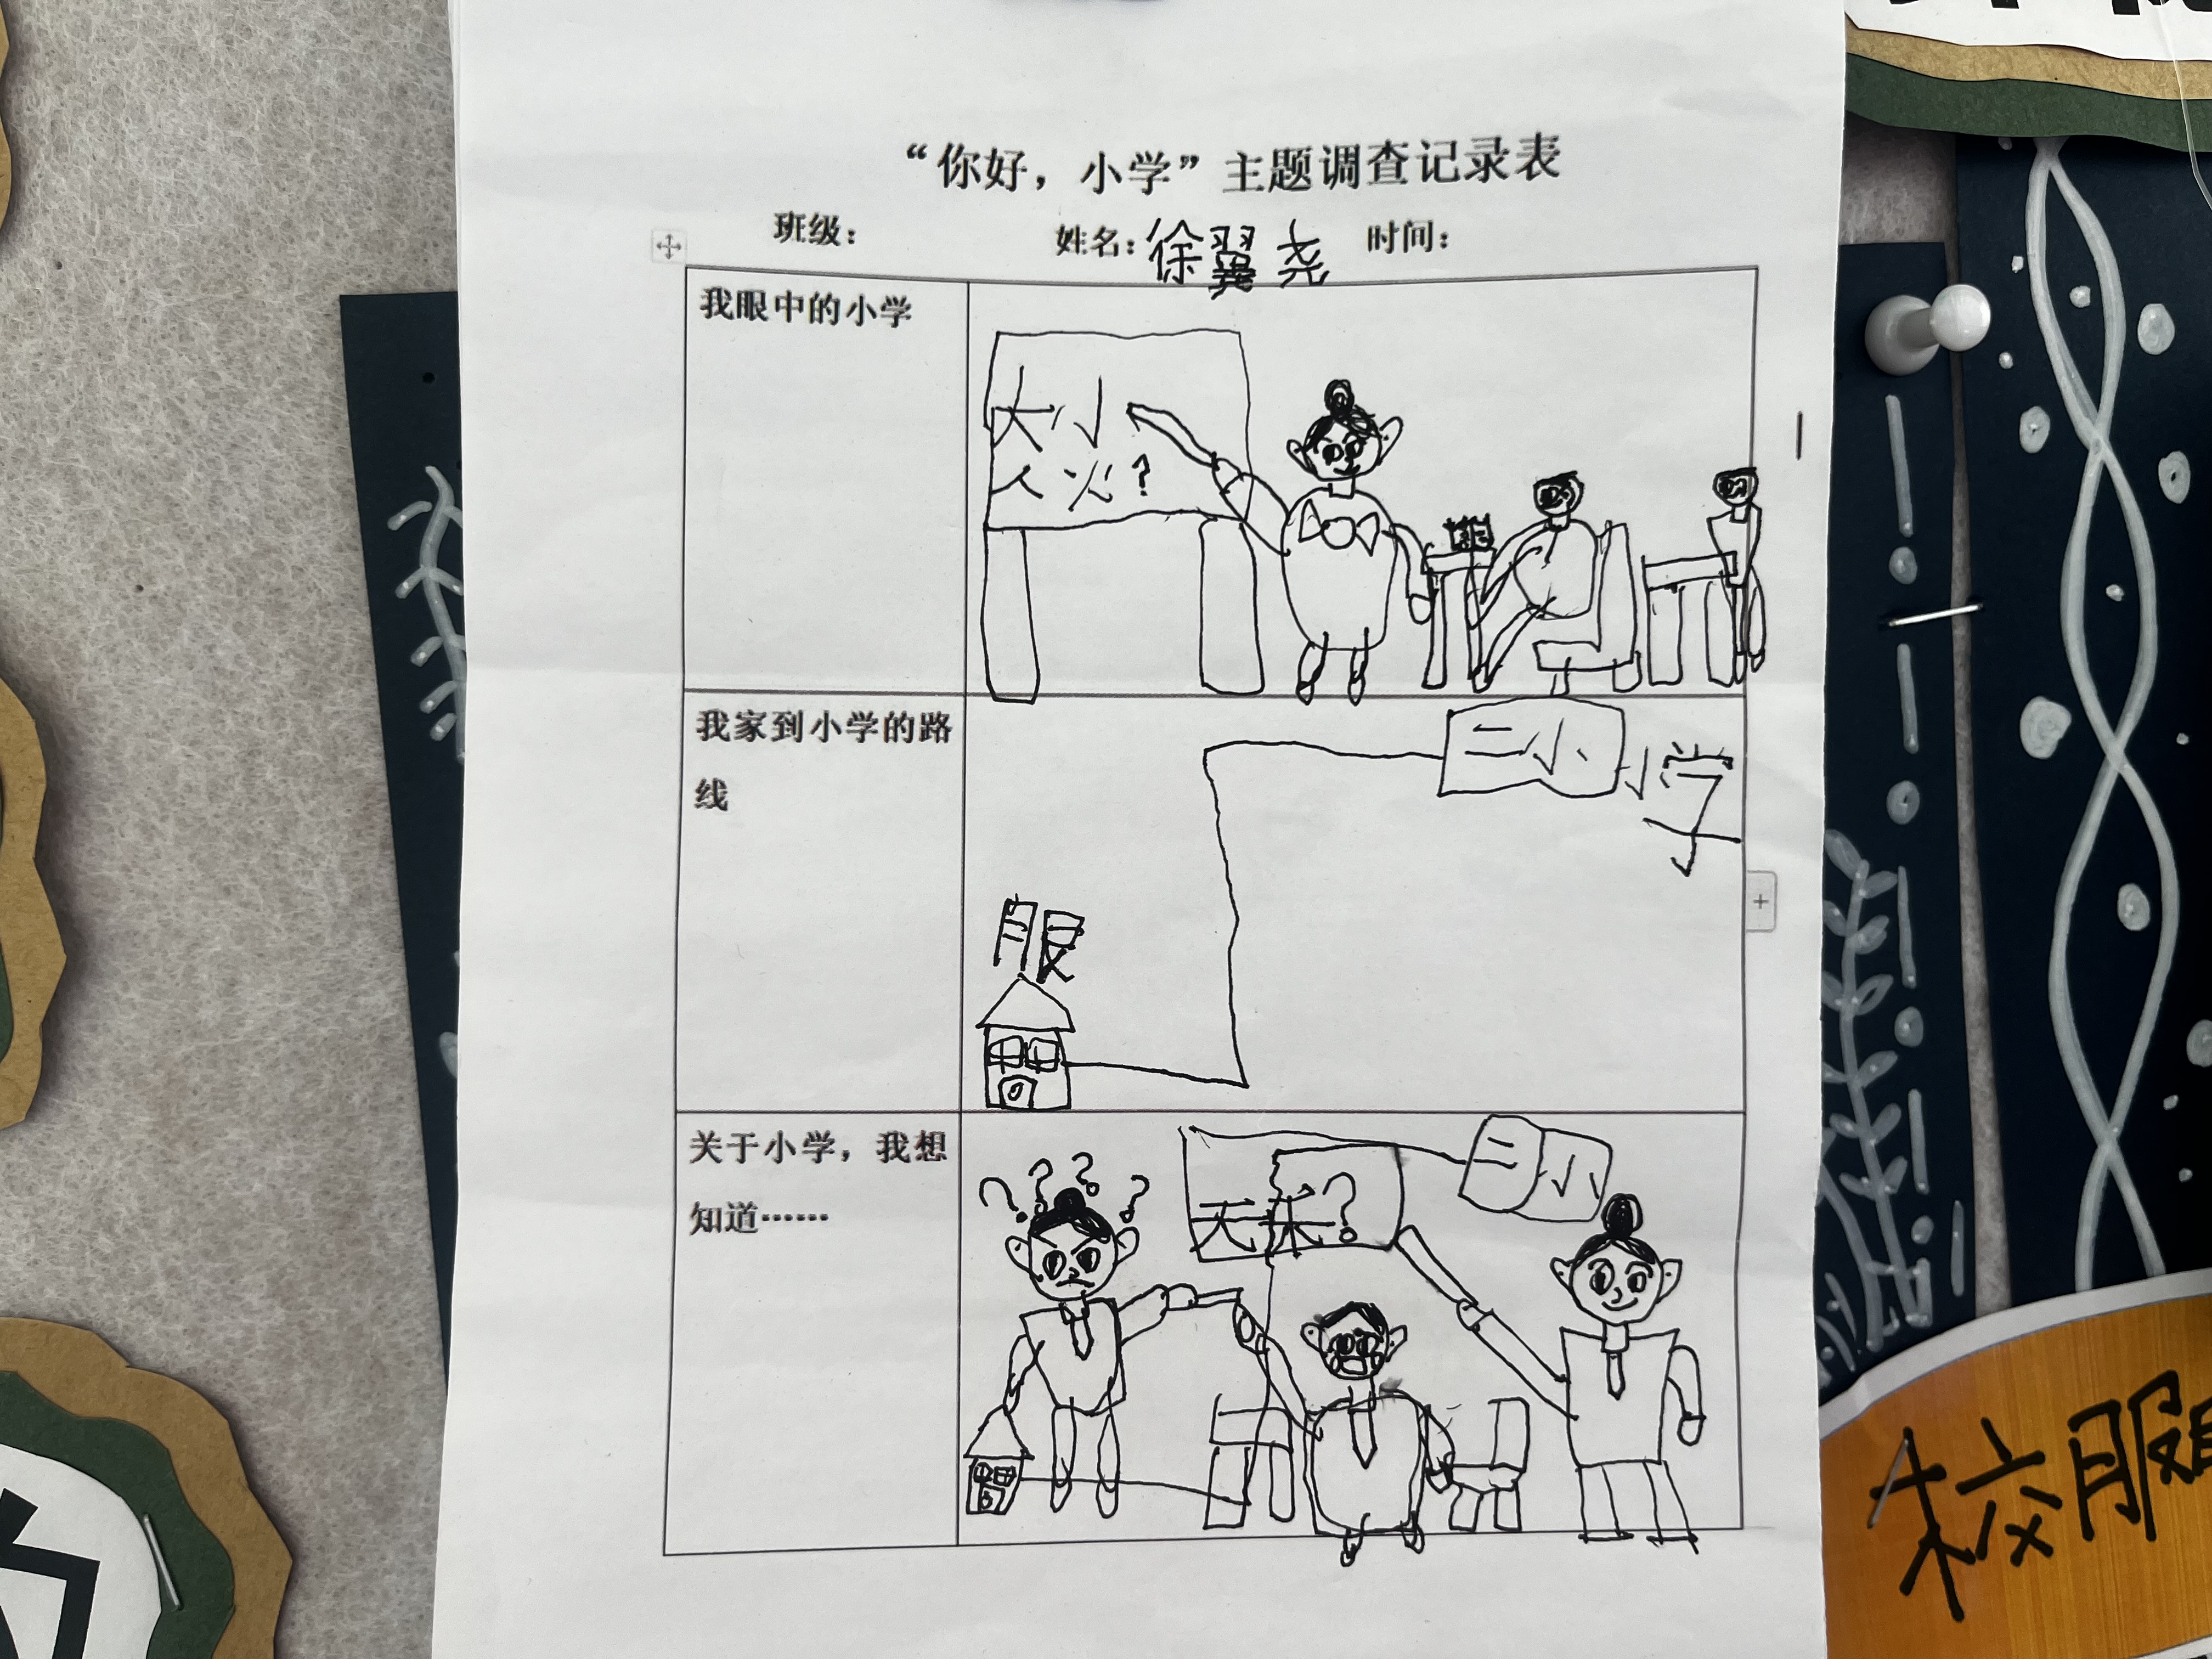 “你好，小学”主题调查记录表
班级： 姓名：徐翼尧 时间：
我眼中的小学
大小
人火？
我家到小学的路
线
二小
小学
服
关于小学，我想
知道……
? ? ? ?
二小
天禾？
校服